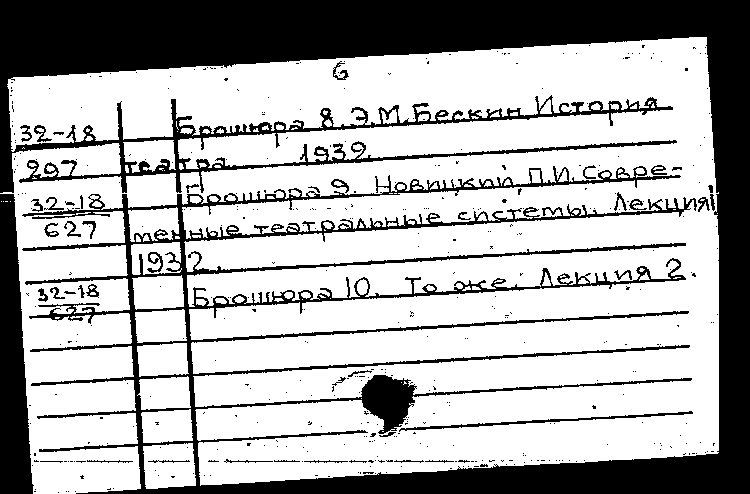 6
32-18 Брошюра 8. Э.М. Бескин. История
297 театра. 1932.
32-18 Брошюра 9. Новицкий, П.И. Совре-
627 менные театральные системы. Лекция 1
1932.
32-18 Брошюра 10. То же. Лекция 2.
627